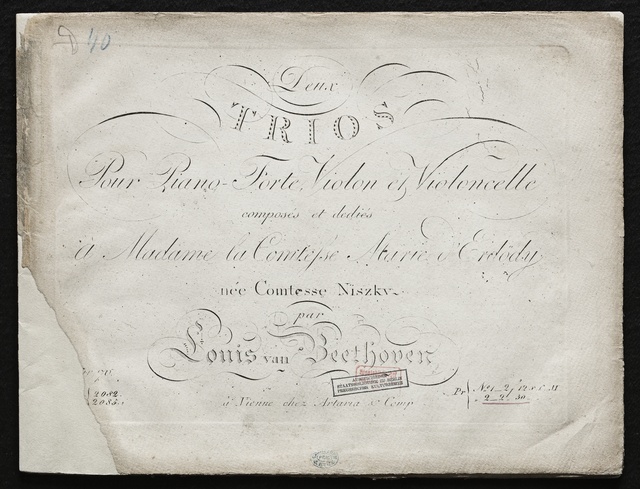 D 40
Deux
TRIOS
Pour Piano-Forte, Violon et Violoncelle
composés et dediés
à Madame la Comtesse Marie d'Erdödy
née Comtesse Niszky
par
Louis van Beethoven
2082.
2085.
à Vienne chez Artaria & Comp
Pr
STAATSBIBLIOTHEK ZU BERLIN
PREUSSISCHER KULTURBESITZ